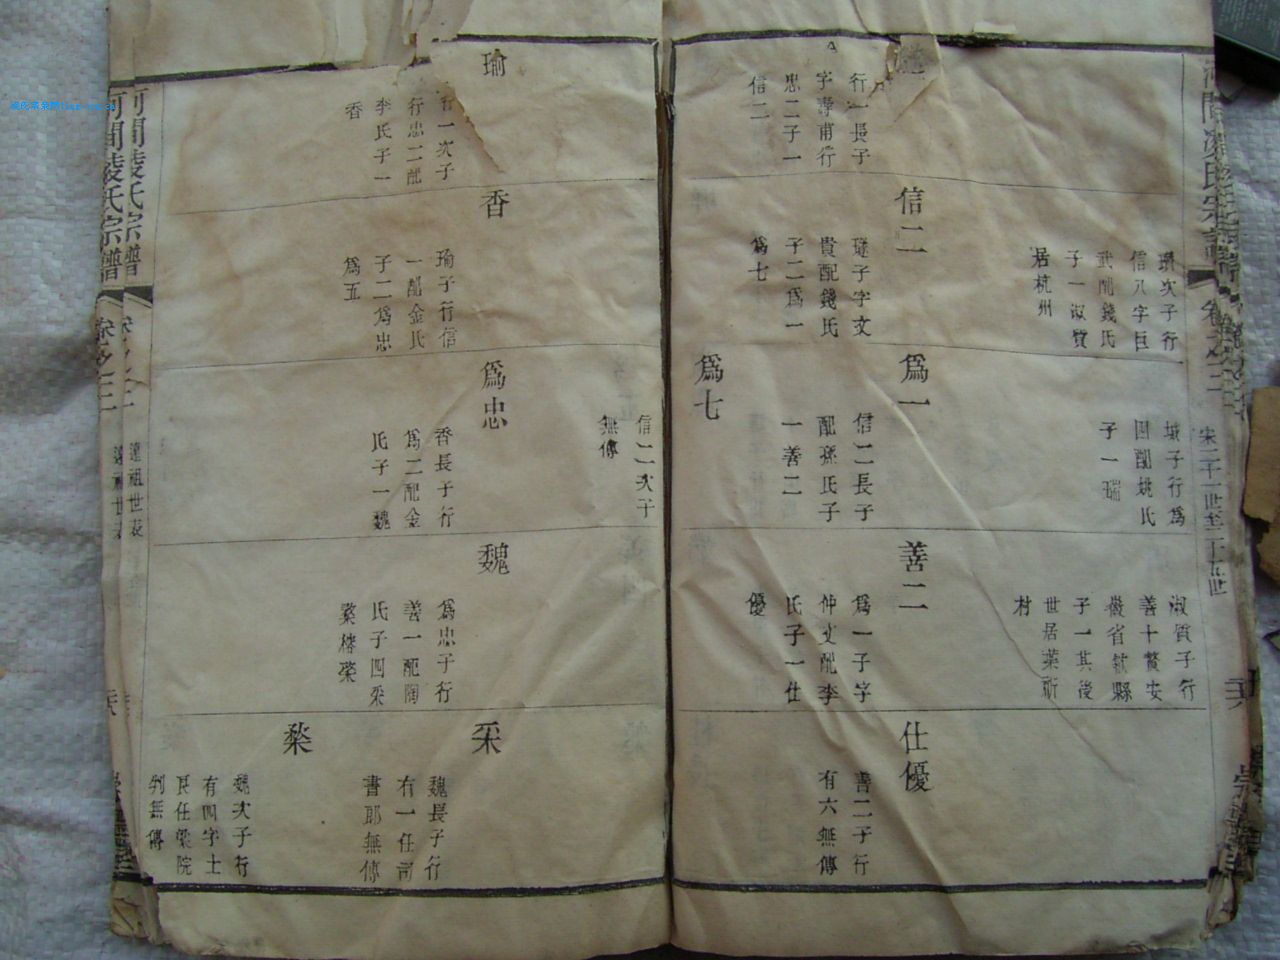 宋二十一世至二十五世
行一長子
字壽甫行
忠二子一
信二
璡次子行
信八字巨
武配錢氏
子一淑賢
居杭州
信二
璲子字文
貴配錢氏
子二爲一
爲七
城子行爲
四配姚氏
子一瑞
爲一
信二長子
配孫氏子
一善二
爲七
信二次子
無傳
淑質子行
善十贅安
徽省歙縣
子一其後
世居葉祈
村
善二
爲一子字
仲文配李
氏子一仕
優
仕優
善二子行
有六無傳
瑜
行一次子
行忠二配
李氏子一
香
香
瑜子行信
一配金氏
子二爲忠
爲五
爲忠
香長子行
爲二配金
氏子一魏
魏
爲忠子行
善一配陶
氏子四采
棨橒榮
采
魏長子行
有一任司
書郎無傳
棨
魏次子行
有四字士
良任儒院
判無傳
河間凌氏宗譜
卷之二
遠祖世表